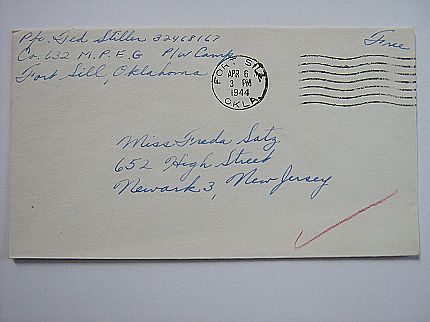 Pfc. Ted Stiller 32468167
Co. 632 M.P.E.G P/W Camp
Fort Sill, Oklahoma
Free
FORT SILL
APR 6
3 PM
1944
OKLA.
Miss Freda Satz
652 High Street
Newark 3, New Jersey